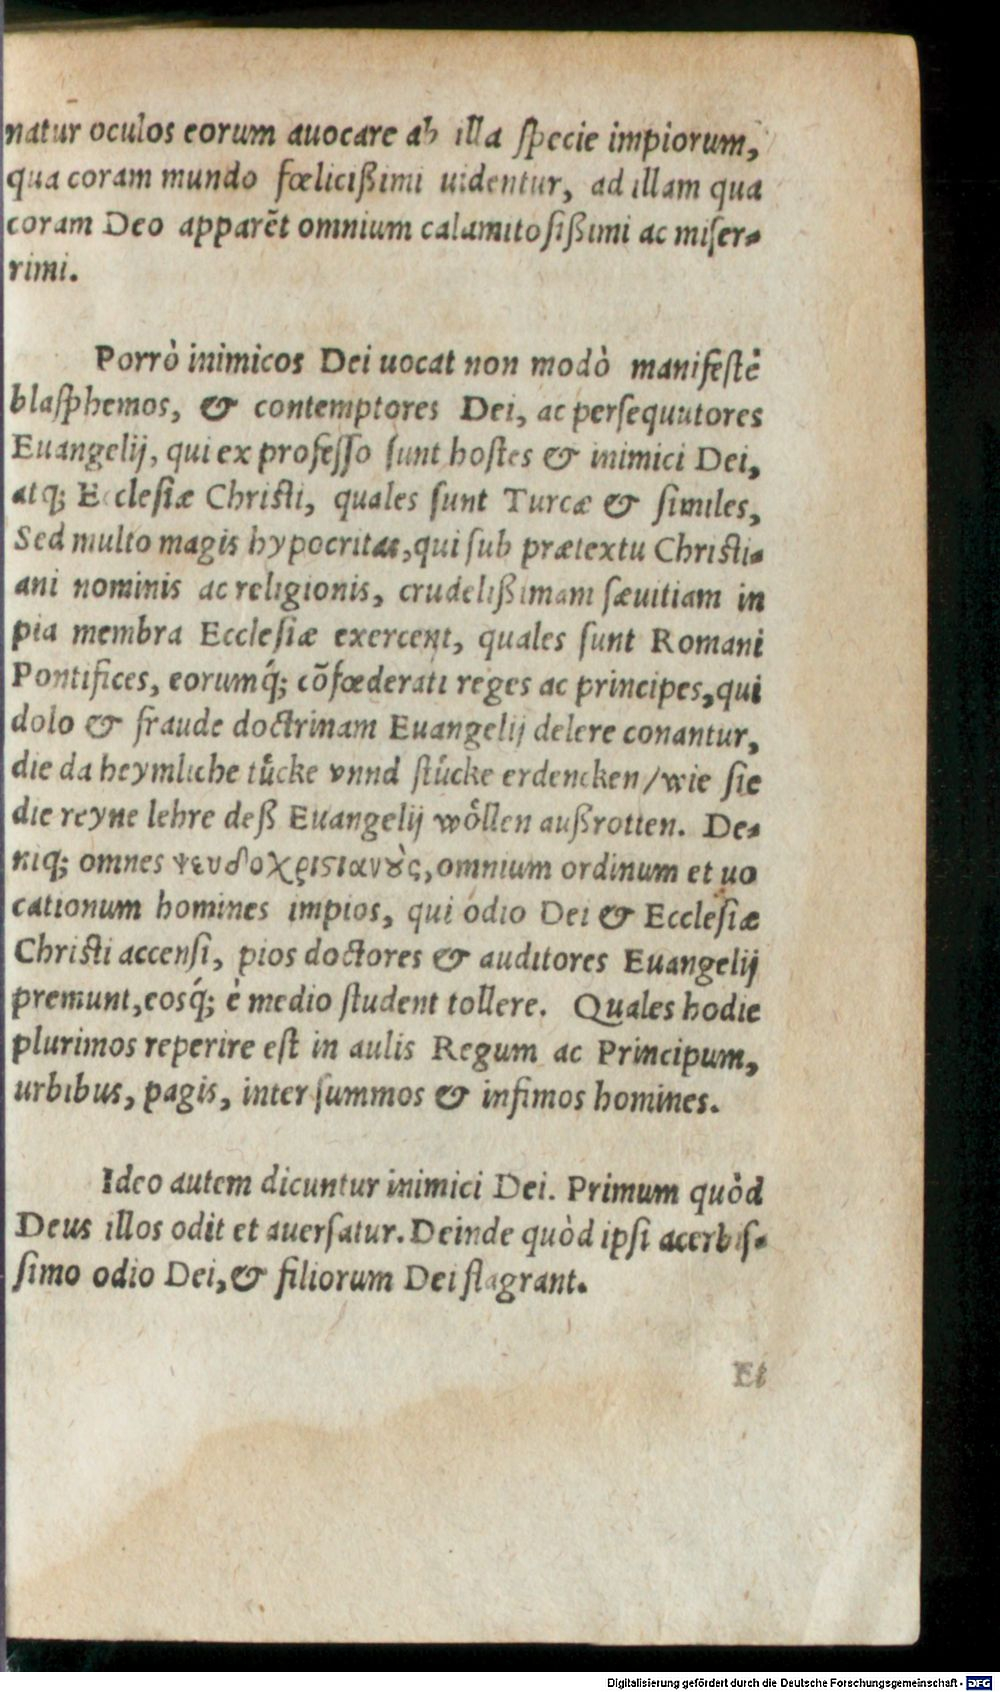 natur oculos eorum auocare ab illa ſpecie impiorum,
qua coram mundo fœliciſsimi uidentur, ad illam qua
coram Deo apparẽt omnium calamitoſiſsimi ac miſer-
rimi.
Porrò inimicos Dei uocat non modò manifeſtè
blaſphemos, & contemptores Dei, ac perſequutores
Euangelij, qui ex profeſſo ſunt hoſtes & inimici Dei,
atq; Eccleſiæ Chriſti, quales ſunt Turcæ & ſimiles,
Sed multo magis hypocritas, qui ſub prætextu Chriſti-
ani nominis ac religionis, crudeliſsimam ſæuitiam in
pia membra Eccleſiæ exercent, quales ſunt Romani
Pontifices, eorumq́; cõfœderati reges ac principes, qui
dolo & fraude doctrinam Euangelij delere conantur,
die da heymliche tuͤcke vnnd ſtuͤcke erdencken / wie ſie
die reyne lehre deß Euangelij woͤllen außrotten. De-
niq; omnes ψευδοχριϛιανȣ̀ς, omnium ordinum et uo
cationum homines impios, qui odio Dei & Eccleſiæ
Chriſti accenſi, pios doctores & auditores Euangelij
premunt, eosq́; è medio ſtudent tollere. Quales hodie
plurimos reperire eſt in aulis Regum ac Principum,
urbibus, pagis, inter ſummos & infimos homines.
Ideo autem dicuntur inimici Dei. Primum quòd
Deus illos odit et auerſatur. Deinde quòd ipſi acerbiſ-
ſimo odio Dei, & filiorum Dei flagrant.
Et
Digitalisierung gefördert durch die Deutsche Forschungsgemeinschaft - DFG